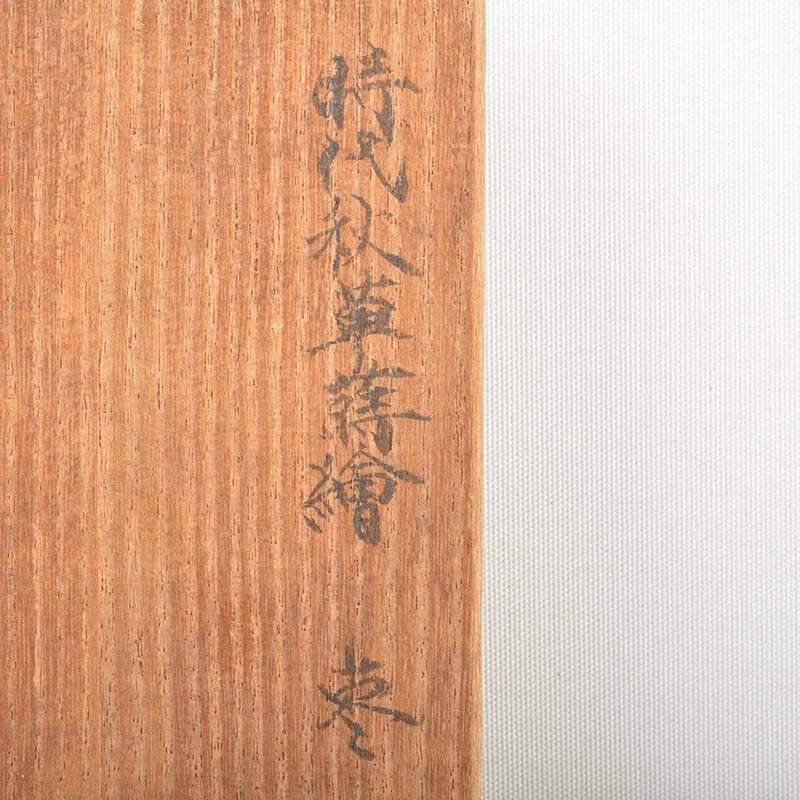 時代秋草蒔繪 棗